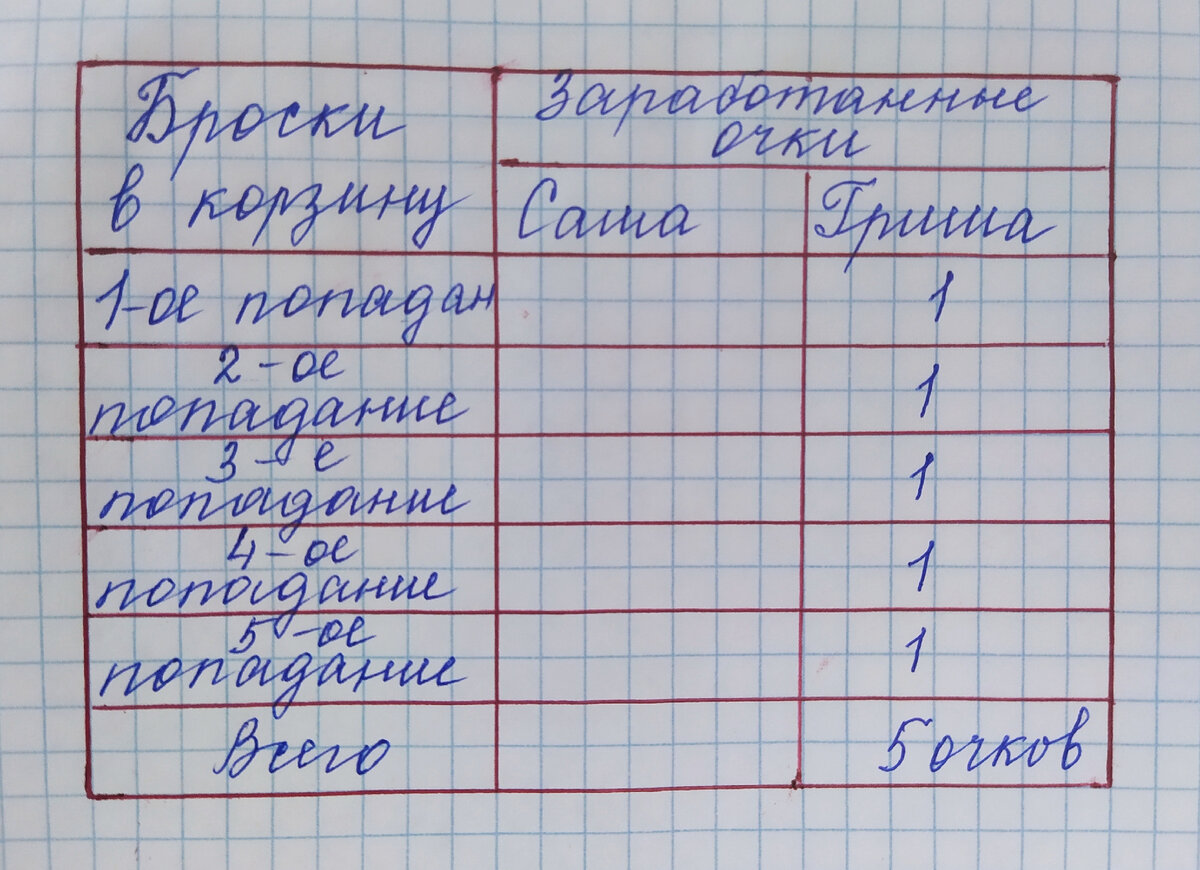 Броски
в корзину
Заработанные
очки
Саша
Гриша
1-ое попадан
1
2-ое
попадание
1
3-е
попадание
1
4-ое
попадание
1
5-ое
попадание
1
Всего
5 очков